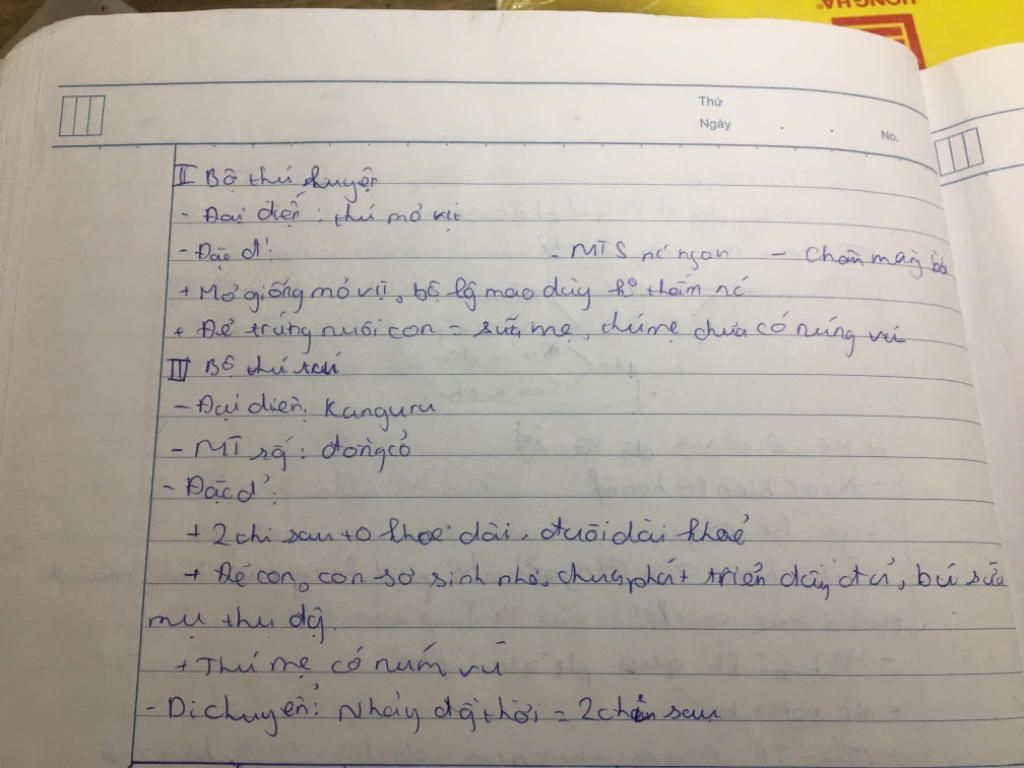 HONGHA
Thứ
Ngày . .
No.
II Bộ thú huyệt
- Đại diện : thú mỏ vịt
- Đặc đ' :
- MTS nc ngọt - Chân màng bơi
+ Mỏ giống mỏ vịt, bộ lg mao dày k° thấm nc
+ Đẻ trứng nuôi con = sữa mẹ, thú mẹ chưa có núng vú
III Bộ thú túi
- Đại diện, Kanguru
- MT sg : đồng cỏ
- Đặc đ' :
+ 2 chi sau to khoẻ dài, đuôi dài khoẻ
+ Đẻ con, con sơ sinh nhỏ, chưa phát triển đầy đủ, bú sữa
mẹ thụ độg.
+ Thú mẹ có núm vú
- Di chuyển : Nhảy đồg thời = 2 chân sau